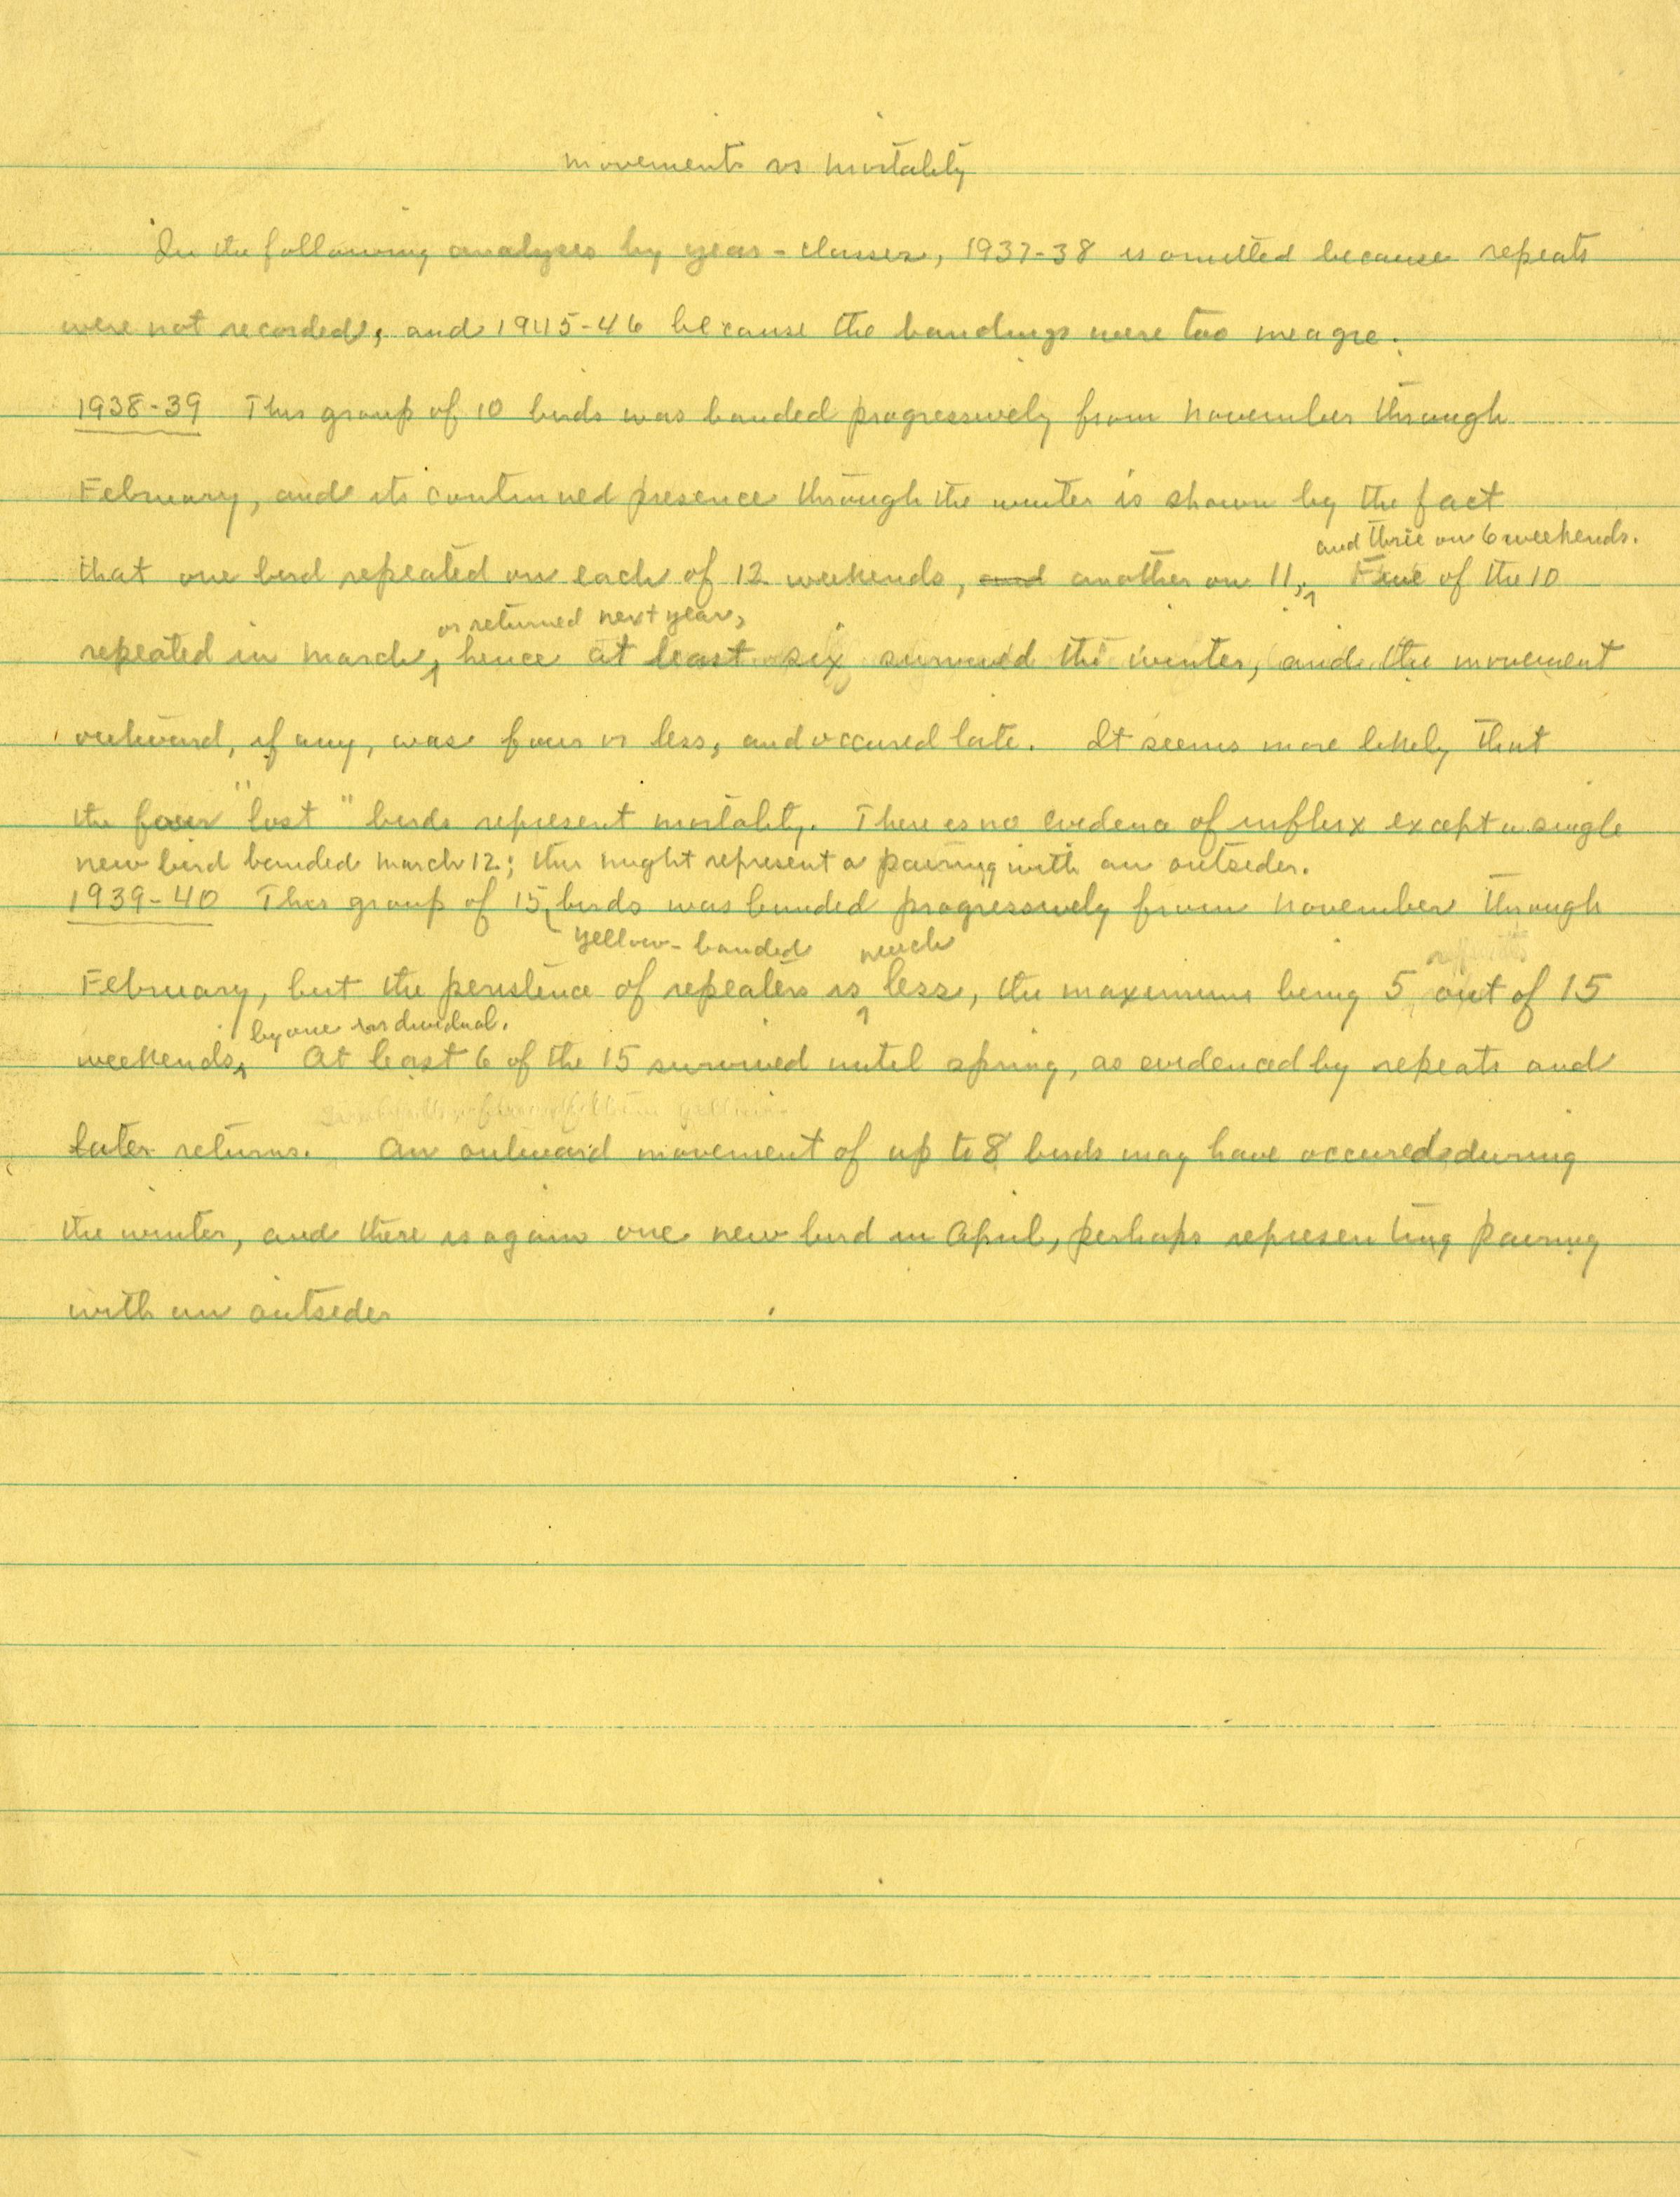 Movements vs Mortality
In the following analyses by year-classes, 1937-38 is omitted because repeats
were not recorded, and 1945-46 because the bandings were too meagre.
1938-39 This group of 10 birds was banded progressively from November through
February, and its continued presence through the winter is shown by the fact
and three on 6 weekends.
that one bird repeated on each of 12 weekends, and another on 11, Five of the 10
or returned next year,
repeated in March, hence at least six survived the winter, and the movement
outward, if any, was four or less, and occured late. It seems more likely that
the four "lost" birds represent mortality. There is no evidence of influx except a single
new bird banded March 12; this might represent a pairing with an outsider.
1939-40 This group of 15 birds was banded progressively from November through
yellow-banded much
February, but the persistence of repeaters is less, the maximum being 5 out of 15
by one individual.
weekends. At least 6 of the 15 survived until spring, as evidenced by repeats and
later returns. An outward movement of up to 8 birds may have occured during
the winter, and there is again one new bird in April, perhaps representing pairing
with an outsider